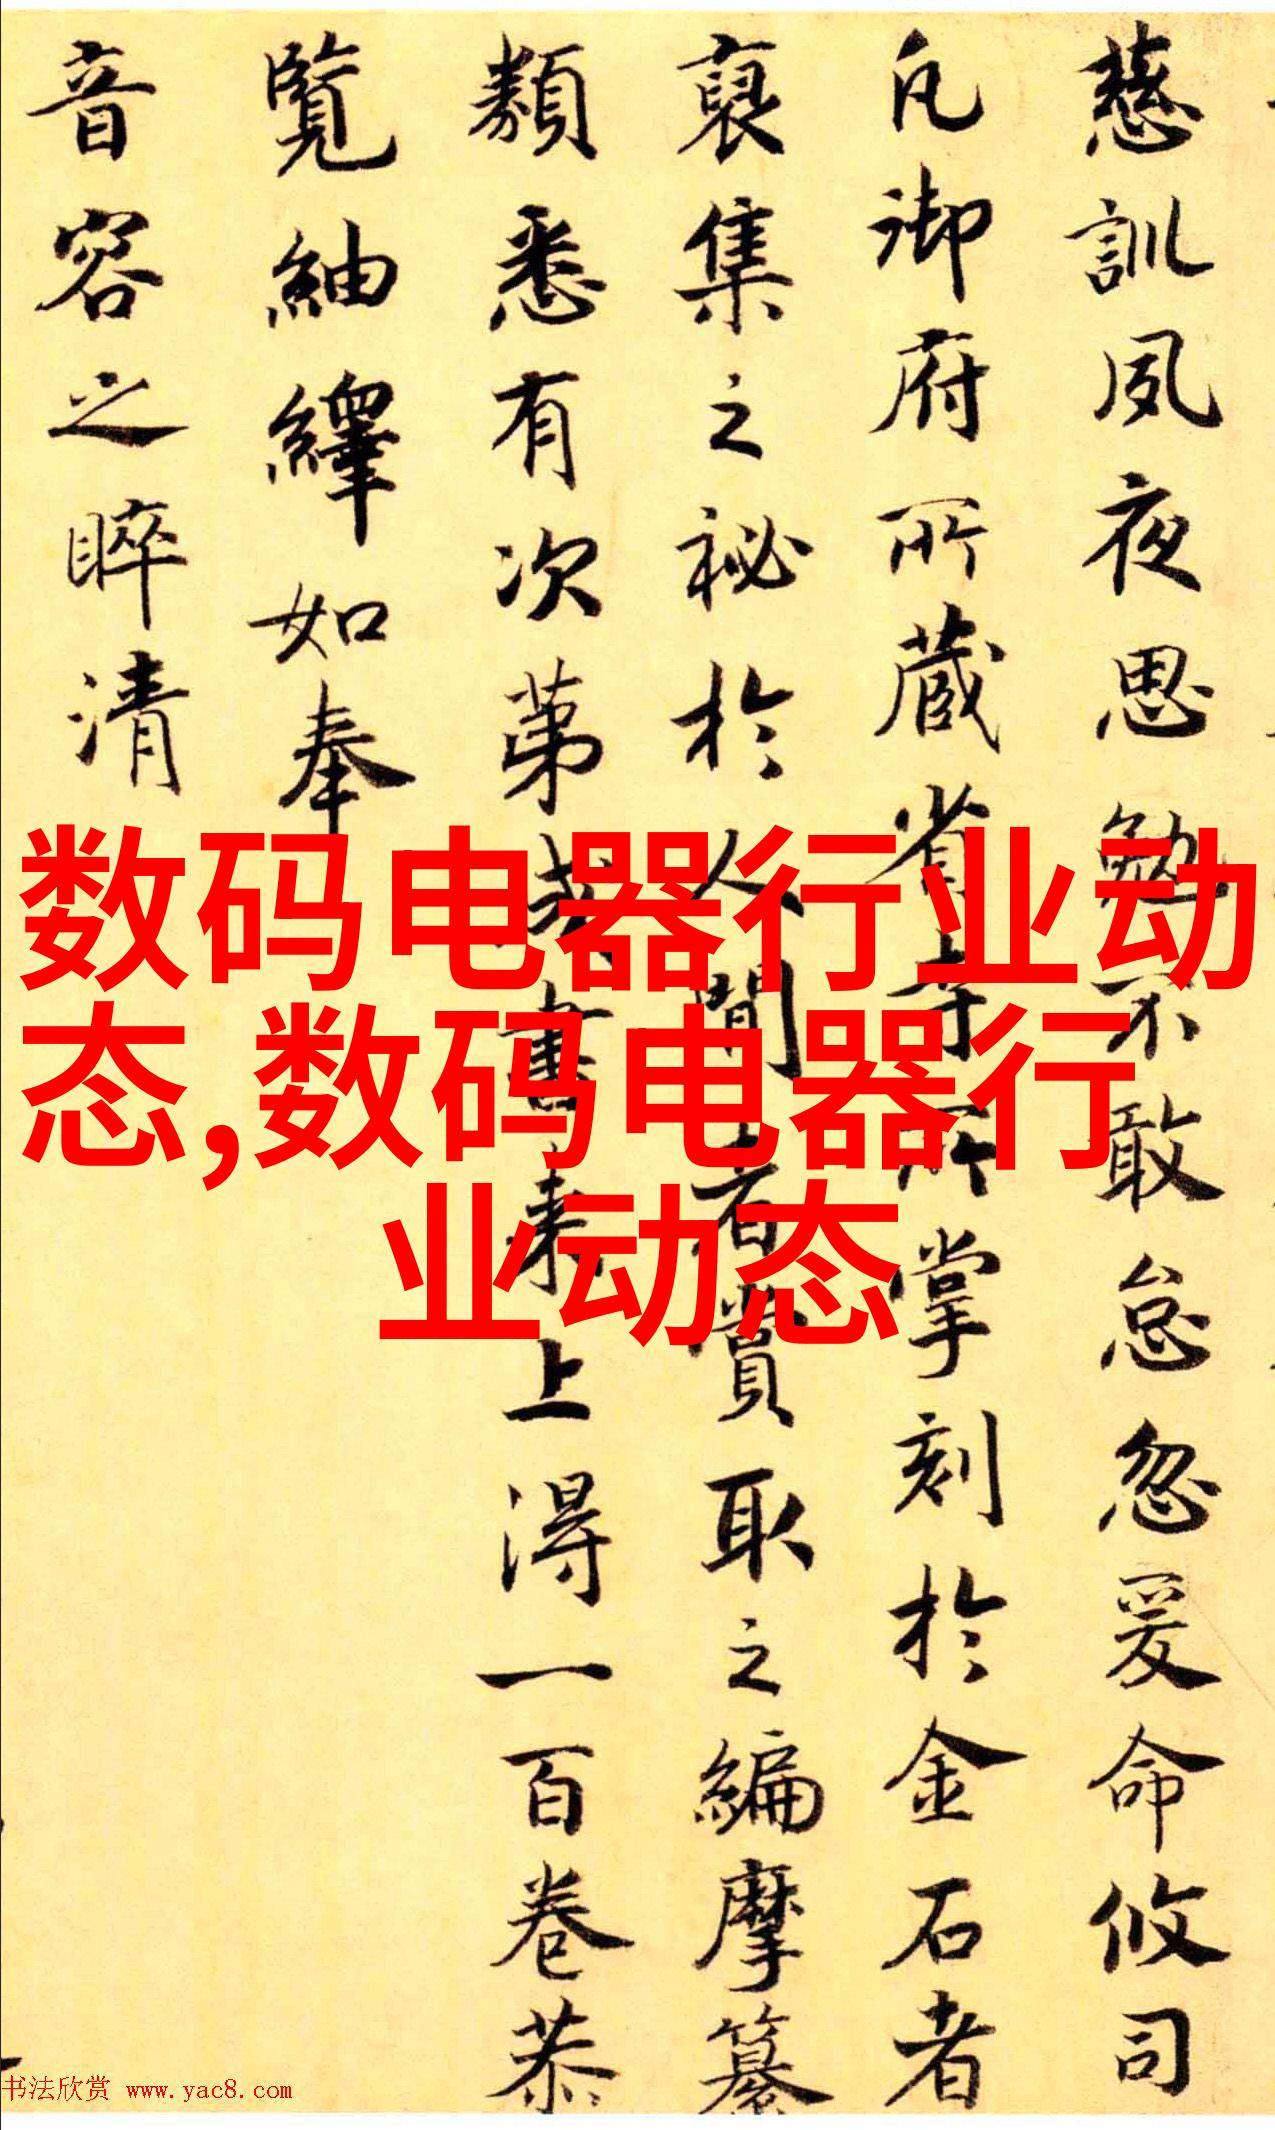 慈訓夙夜思勉不敢怠忽爰命攸司
凡御府所藏省寺所掌刻於金石者
裒集之祕於人間者賞取之編摩纂
類悉有次第成書來上得一百卷恭
覽紬繹如奉
音容之睟清
数码电器行业动
态,数码电器行
业动态
书法欣赏 www.yac8.com